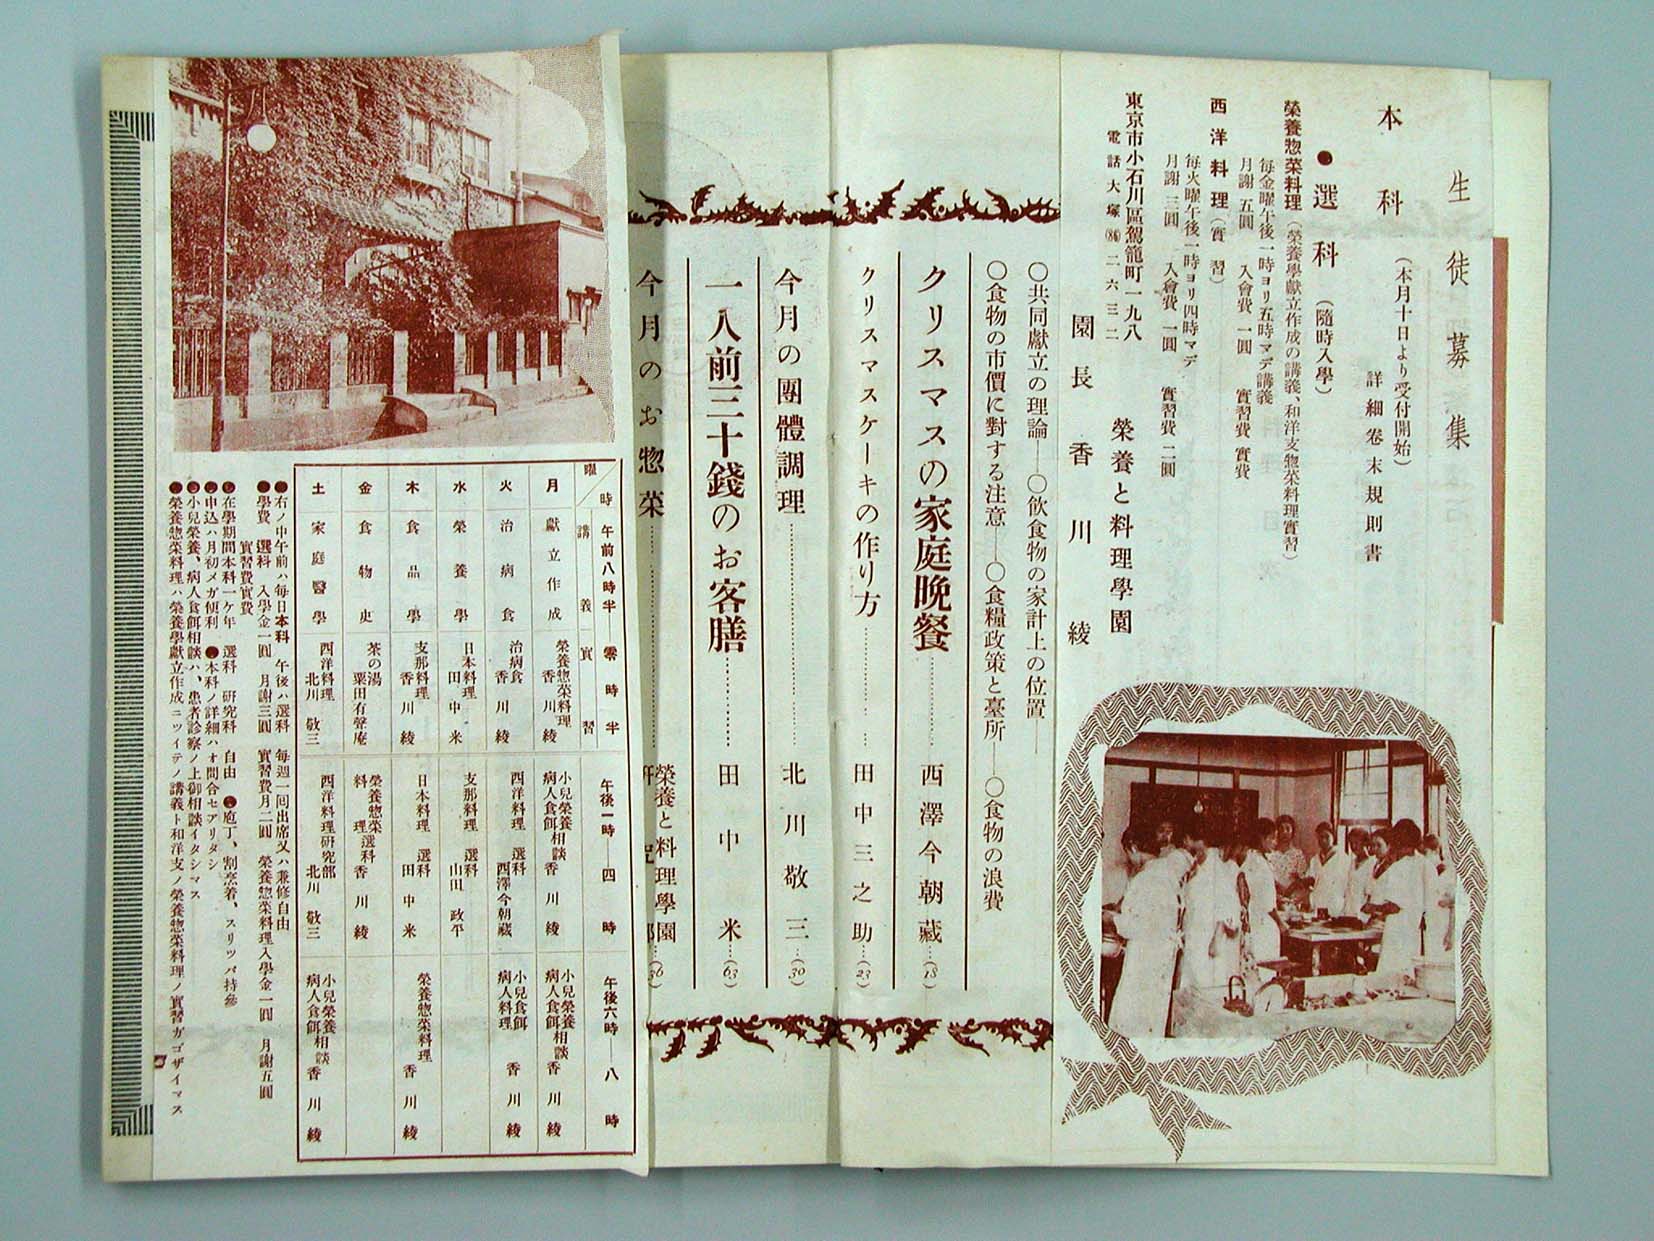 生徒募集
本科
(本月十日より受付開始)
詳細卷末規則書
●選科(隨時入學)
榮養惣菜料理(榮養學獻立作成の講義、和洋支惣菜料理實習)
毎金曜午後一時ヨリ五時マデ講義
月謝五圓 入會費一圓 實習費實費
西洋料理(實習)
毎火曜午後一時ヨリ四時マデ
月謝三圓 入會費一圓 實習費二圓
東京市小石川區駕籠町一九八
電話大塚(86)二六三二
榮養と料理學園
園長 香川綾
○共同獻立の理論──○飲食物の家計上の位置──
○食物の市價に對する注意──○食糧政策と臺所──○食物の浪費
クリスマスの家庭晩餐……西澤今朝藏…(18)
クリスマスケーキの作り方……田中三之助…(23)
今月の團體調理……北川敬三…(30)
一人前三十錢のお客膳……田中米…(63)
今月のお惣菜……榮養と料理學園
曜 時 午前八時半 零時半 午後一時──四時 午後六時──八時
講義 實習
月 獻立作成 榮養惣菜料理 香川綾 小兒榮養病人食餌相談 香川綾 小兒榮養病人食餌相談 香川綾
火 治病食 治病食 香川綾 西洋料理選科 西澤今朝藏 小兒食餌病人料理 香川綾
水 榮養學 日本料理 田中米 支那料理選科 山田政平
木 食品學 支那料理 香川綾 日本料理選科 田中米 榮養惣菜料理 香川綾
金 食物史 茶の湯 粟田有聲庵 榮養惣菜料理選科 香川綾
土 家庭醫學 西洋料理 北川敬三 西洋料理研究部 北川敬三 小兒榮養病人食餌相談 香川綾
●右ノ中午前ハ毎日本科 午後ハ選科 毎週一回出席又ハ兼修自由
●學費 選科 入學金一圓 月謝三圓 實習費月二圓 榮養惣菜料理入學金一圓 月謝五圓
實習費實費
●在學期間本科一ケ年 選科 研究科 自由 ●庖丁、割烹着、スリッパ持參
●申込ハ月初メガ便利 ●本科ノ詳細ハオ問合セアリタシ
●小兒榮養、病人食餌相談ハ、患者診察ノ上御相談イタシマス
●榮養惣菜料理ハ榮養學獻立作成ニツイテノ講義ト和洋支ノ榮養惣菜料理ノ實習ガゴザイマス